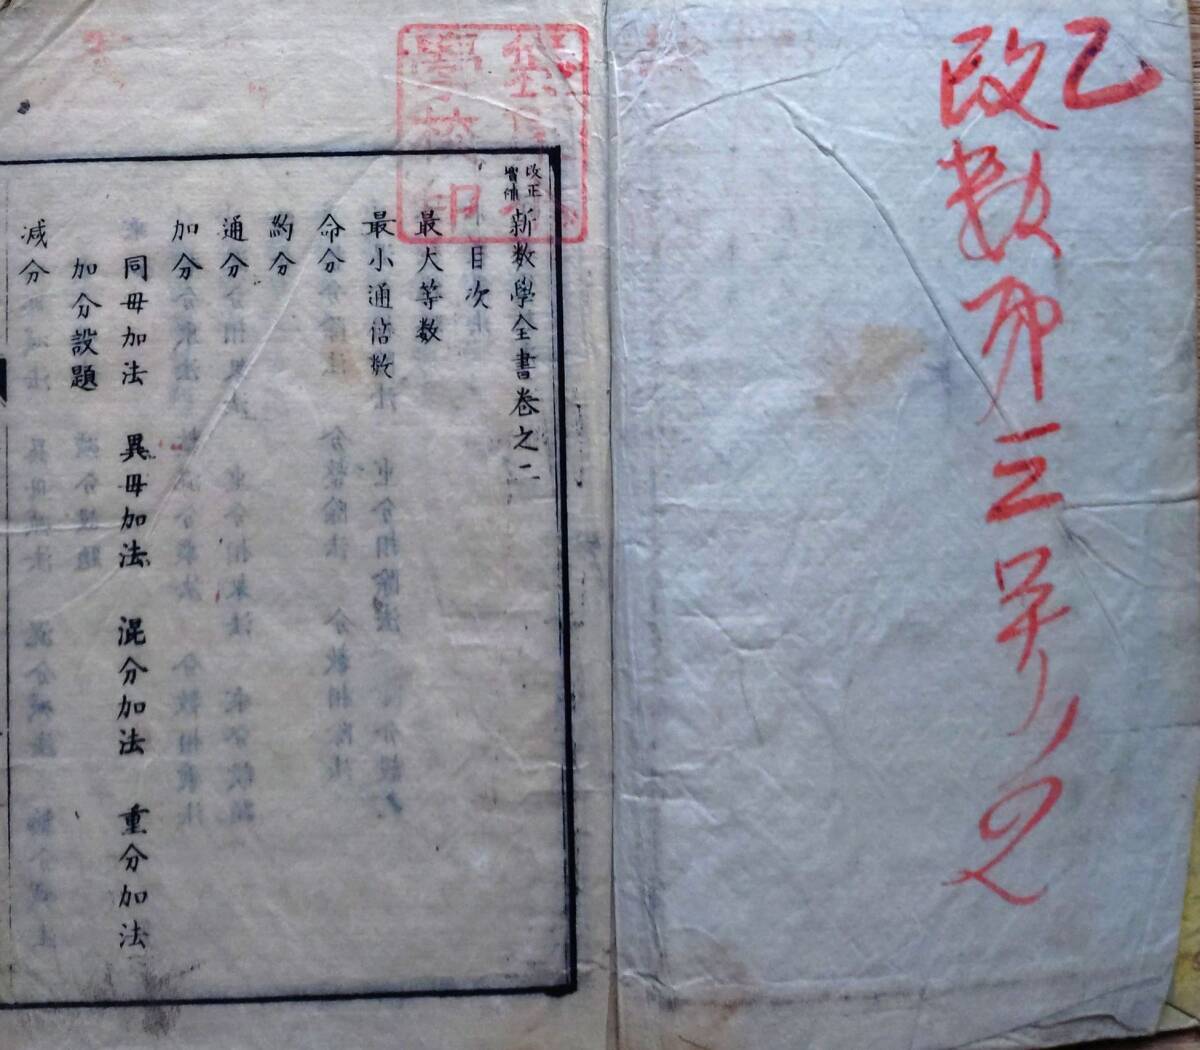 乙
改数第三号ノ2
改正
增補
新数學全書卷之二
目次
最大等数
最小通倍数
命分
約分
通分
加分
同毋加法 異毋加法 混分加法 重分加法
加分設題
減分
學校印